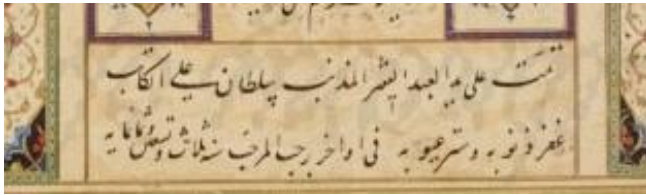 تمت علی ید العبد الفقیر المذنب سلطان علی الکاتب
غفر ذنوبه و ستر عیوبه فی اواخر رجب المرجب سنه ثلاث و تسعین و ثمانمایه